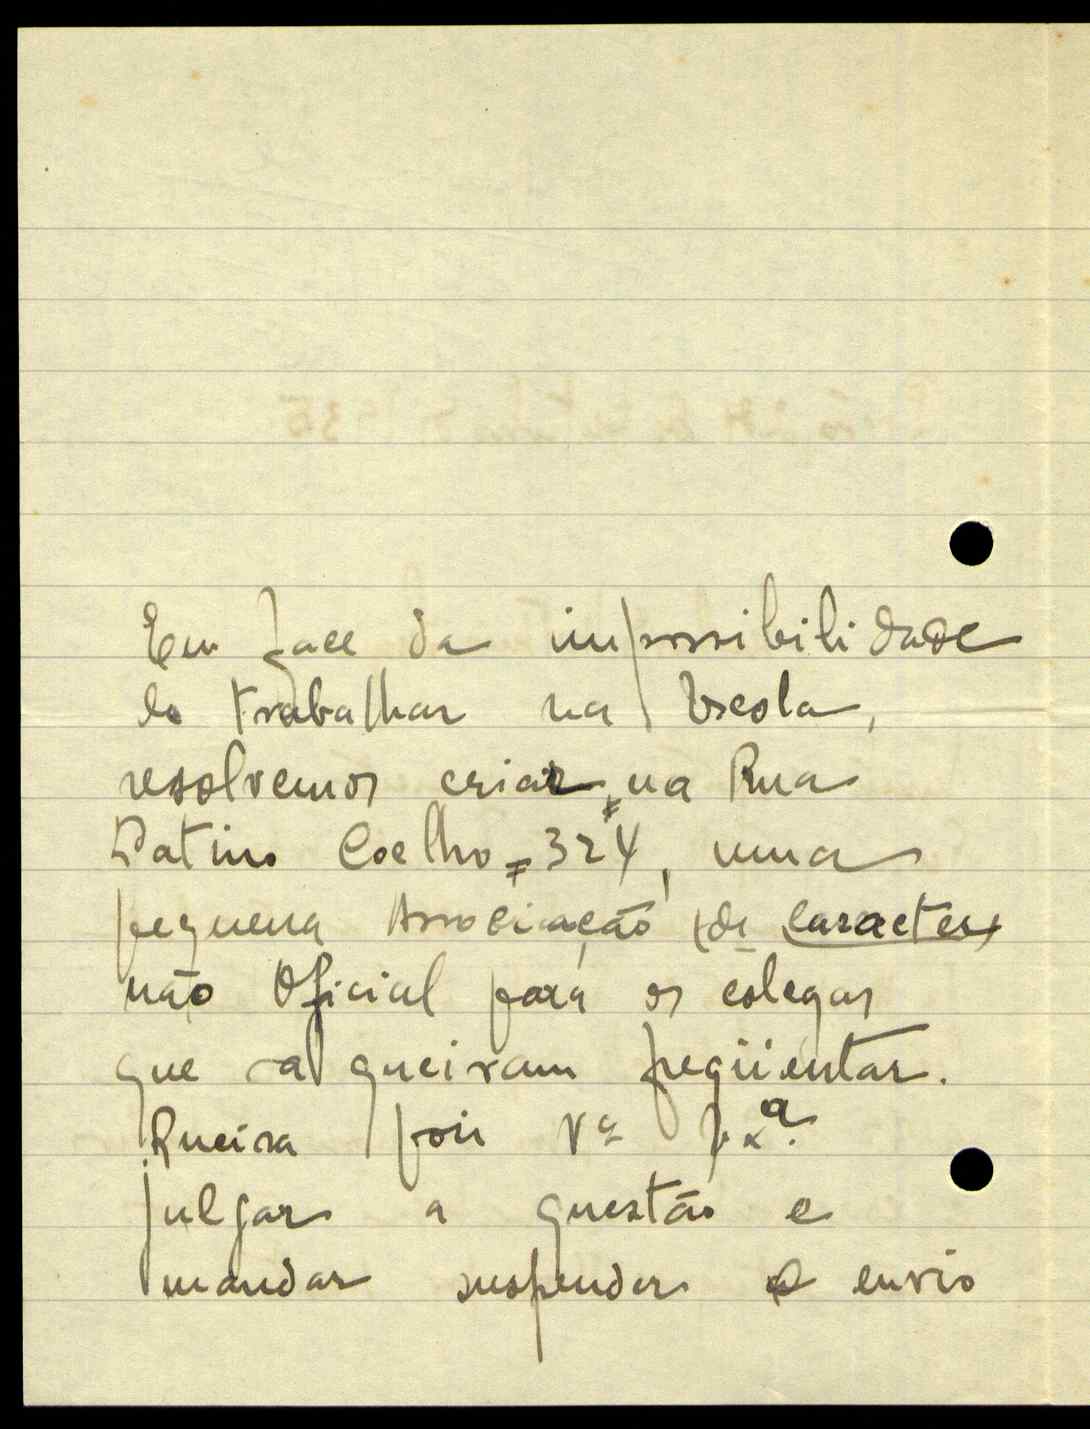 Em face da impossibilidade
de trabalhar na Escola,
resolvemos criar, na Rua
Latino Coelho = 324, uma
pequena Associação (de caracter
não Oficial para os colegas
que a queiram freqüentar.
Queira pois Vª Exª.
julgar a questão e
mandar suspender o envio